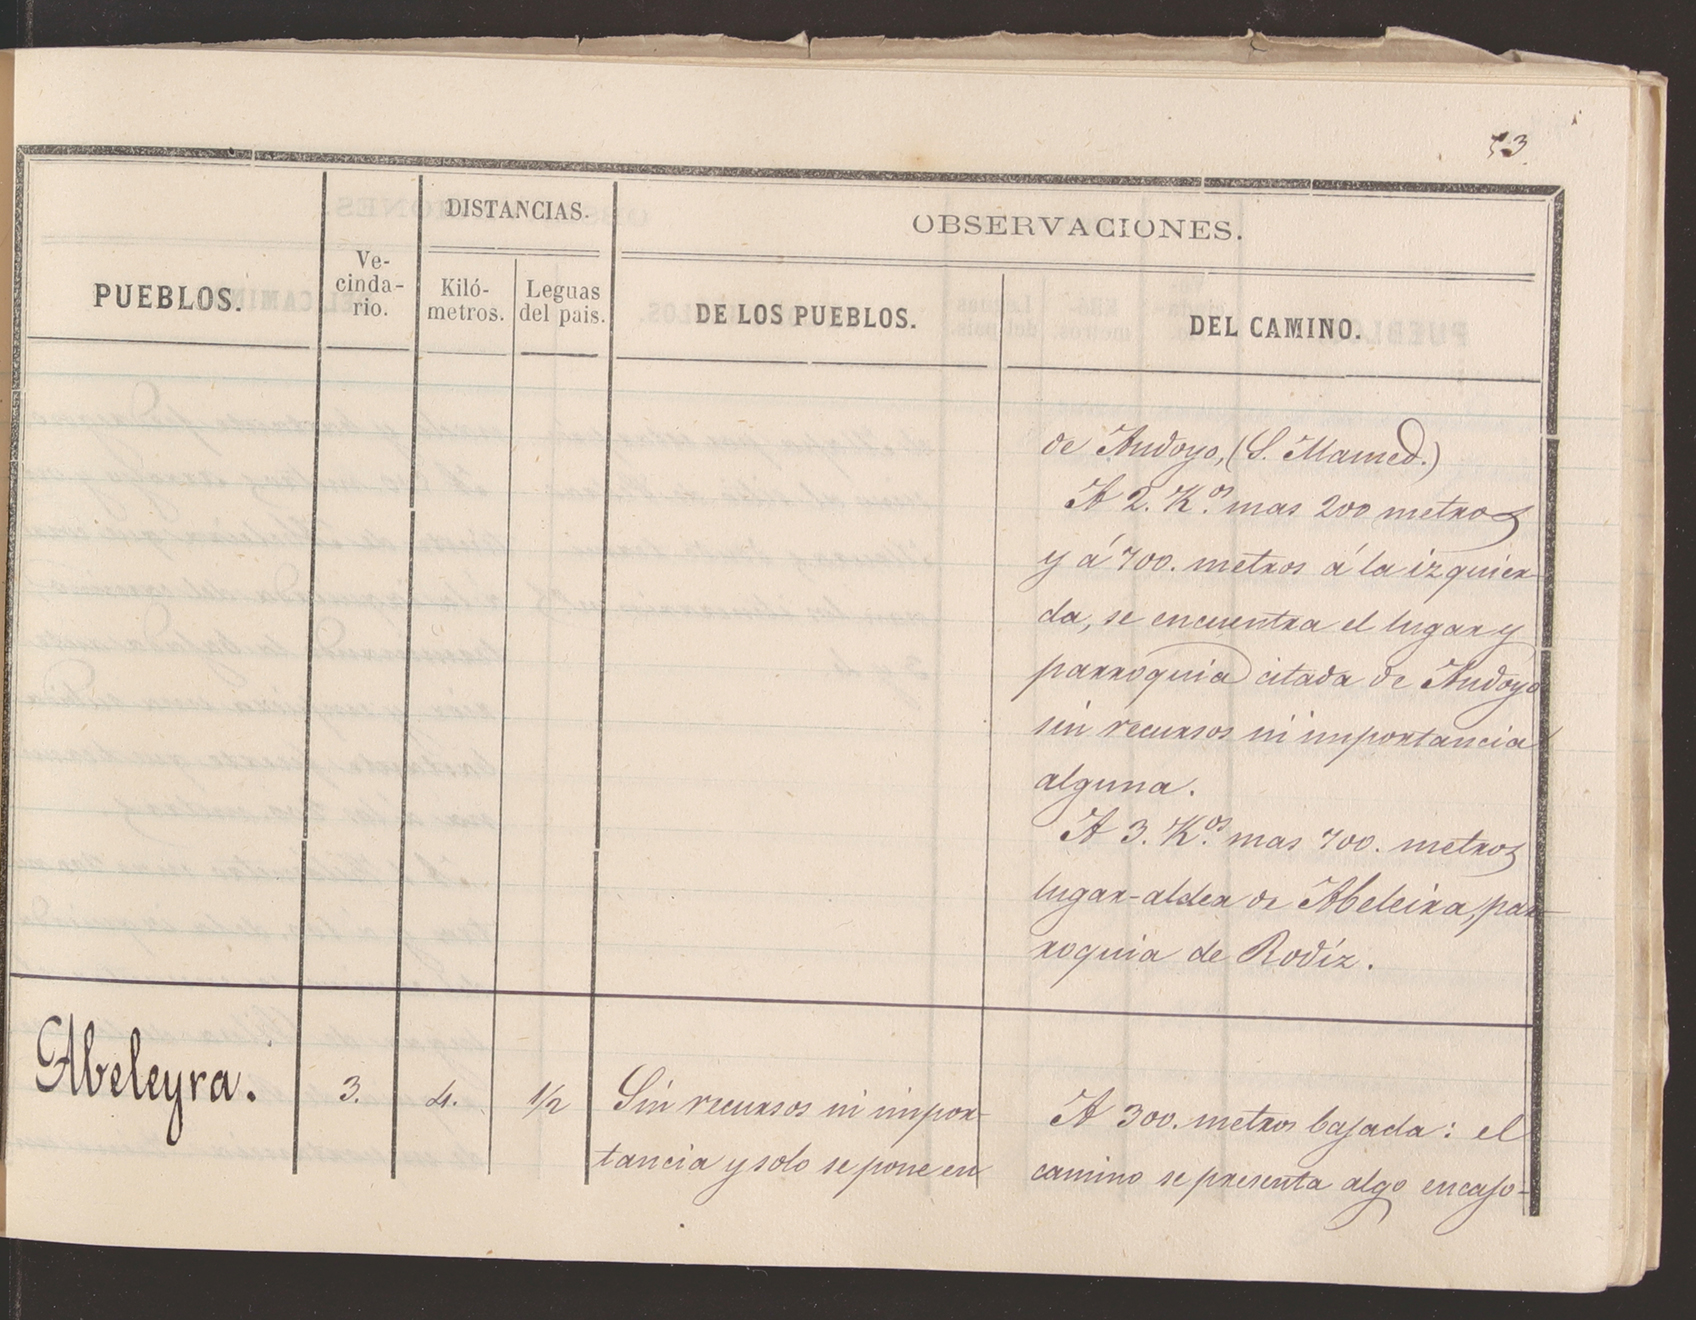 53
PUEBLOS.
Ve-
cinda-
rio.
DISTANCIAS.
Kiló-
metros.
Leguas
del pais.
OBSERVACIONES.
DE LOS PUEBLOS.
DEL CAMINO.
de Andoyo, (S. Mamed.)
A 2. K.os mas 200 metros
y á 700. metros á la izquier-
da, se encuentra el lugar y
parroquia citada de Andoyo
sin recursos ni importancia
alguna.
A 3. K.os mas 700. metros
lugar-aldea de Abeleira, par-
roquia de Rodíz.
Abeleyra.
3.
4.
1/2
Sin recursos ni impor-
tancia y solo se pone en
A 300. metros bajada: el
camino se presenta algo encajo-